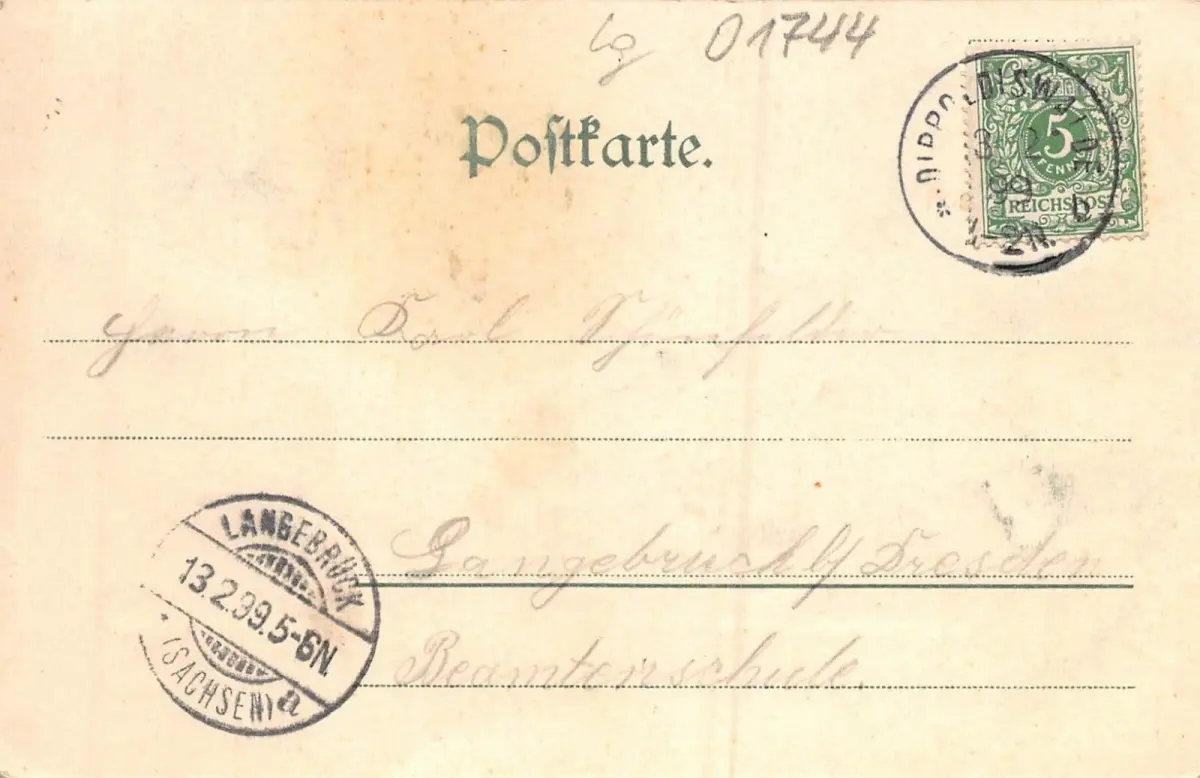 lg 01744
Postkarte.
* DIPPOLDISWALDE b
5
PFENNIG
REICHSPOST
13 2
99
1-2N.
Herrn Karl Schönfelder
Langebrück b/ Dresden
Beamtenschule.
LANGEBRÜCK
13.2.99.5-6N.
(SACHSEN) a